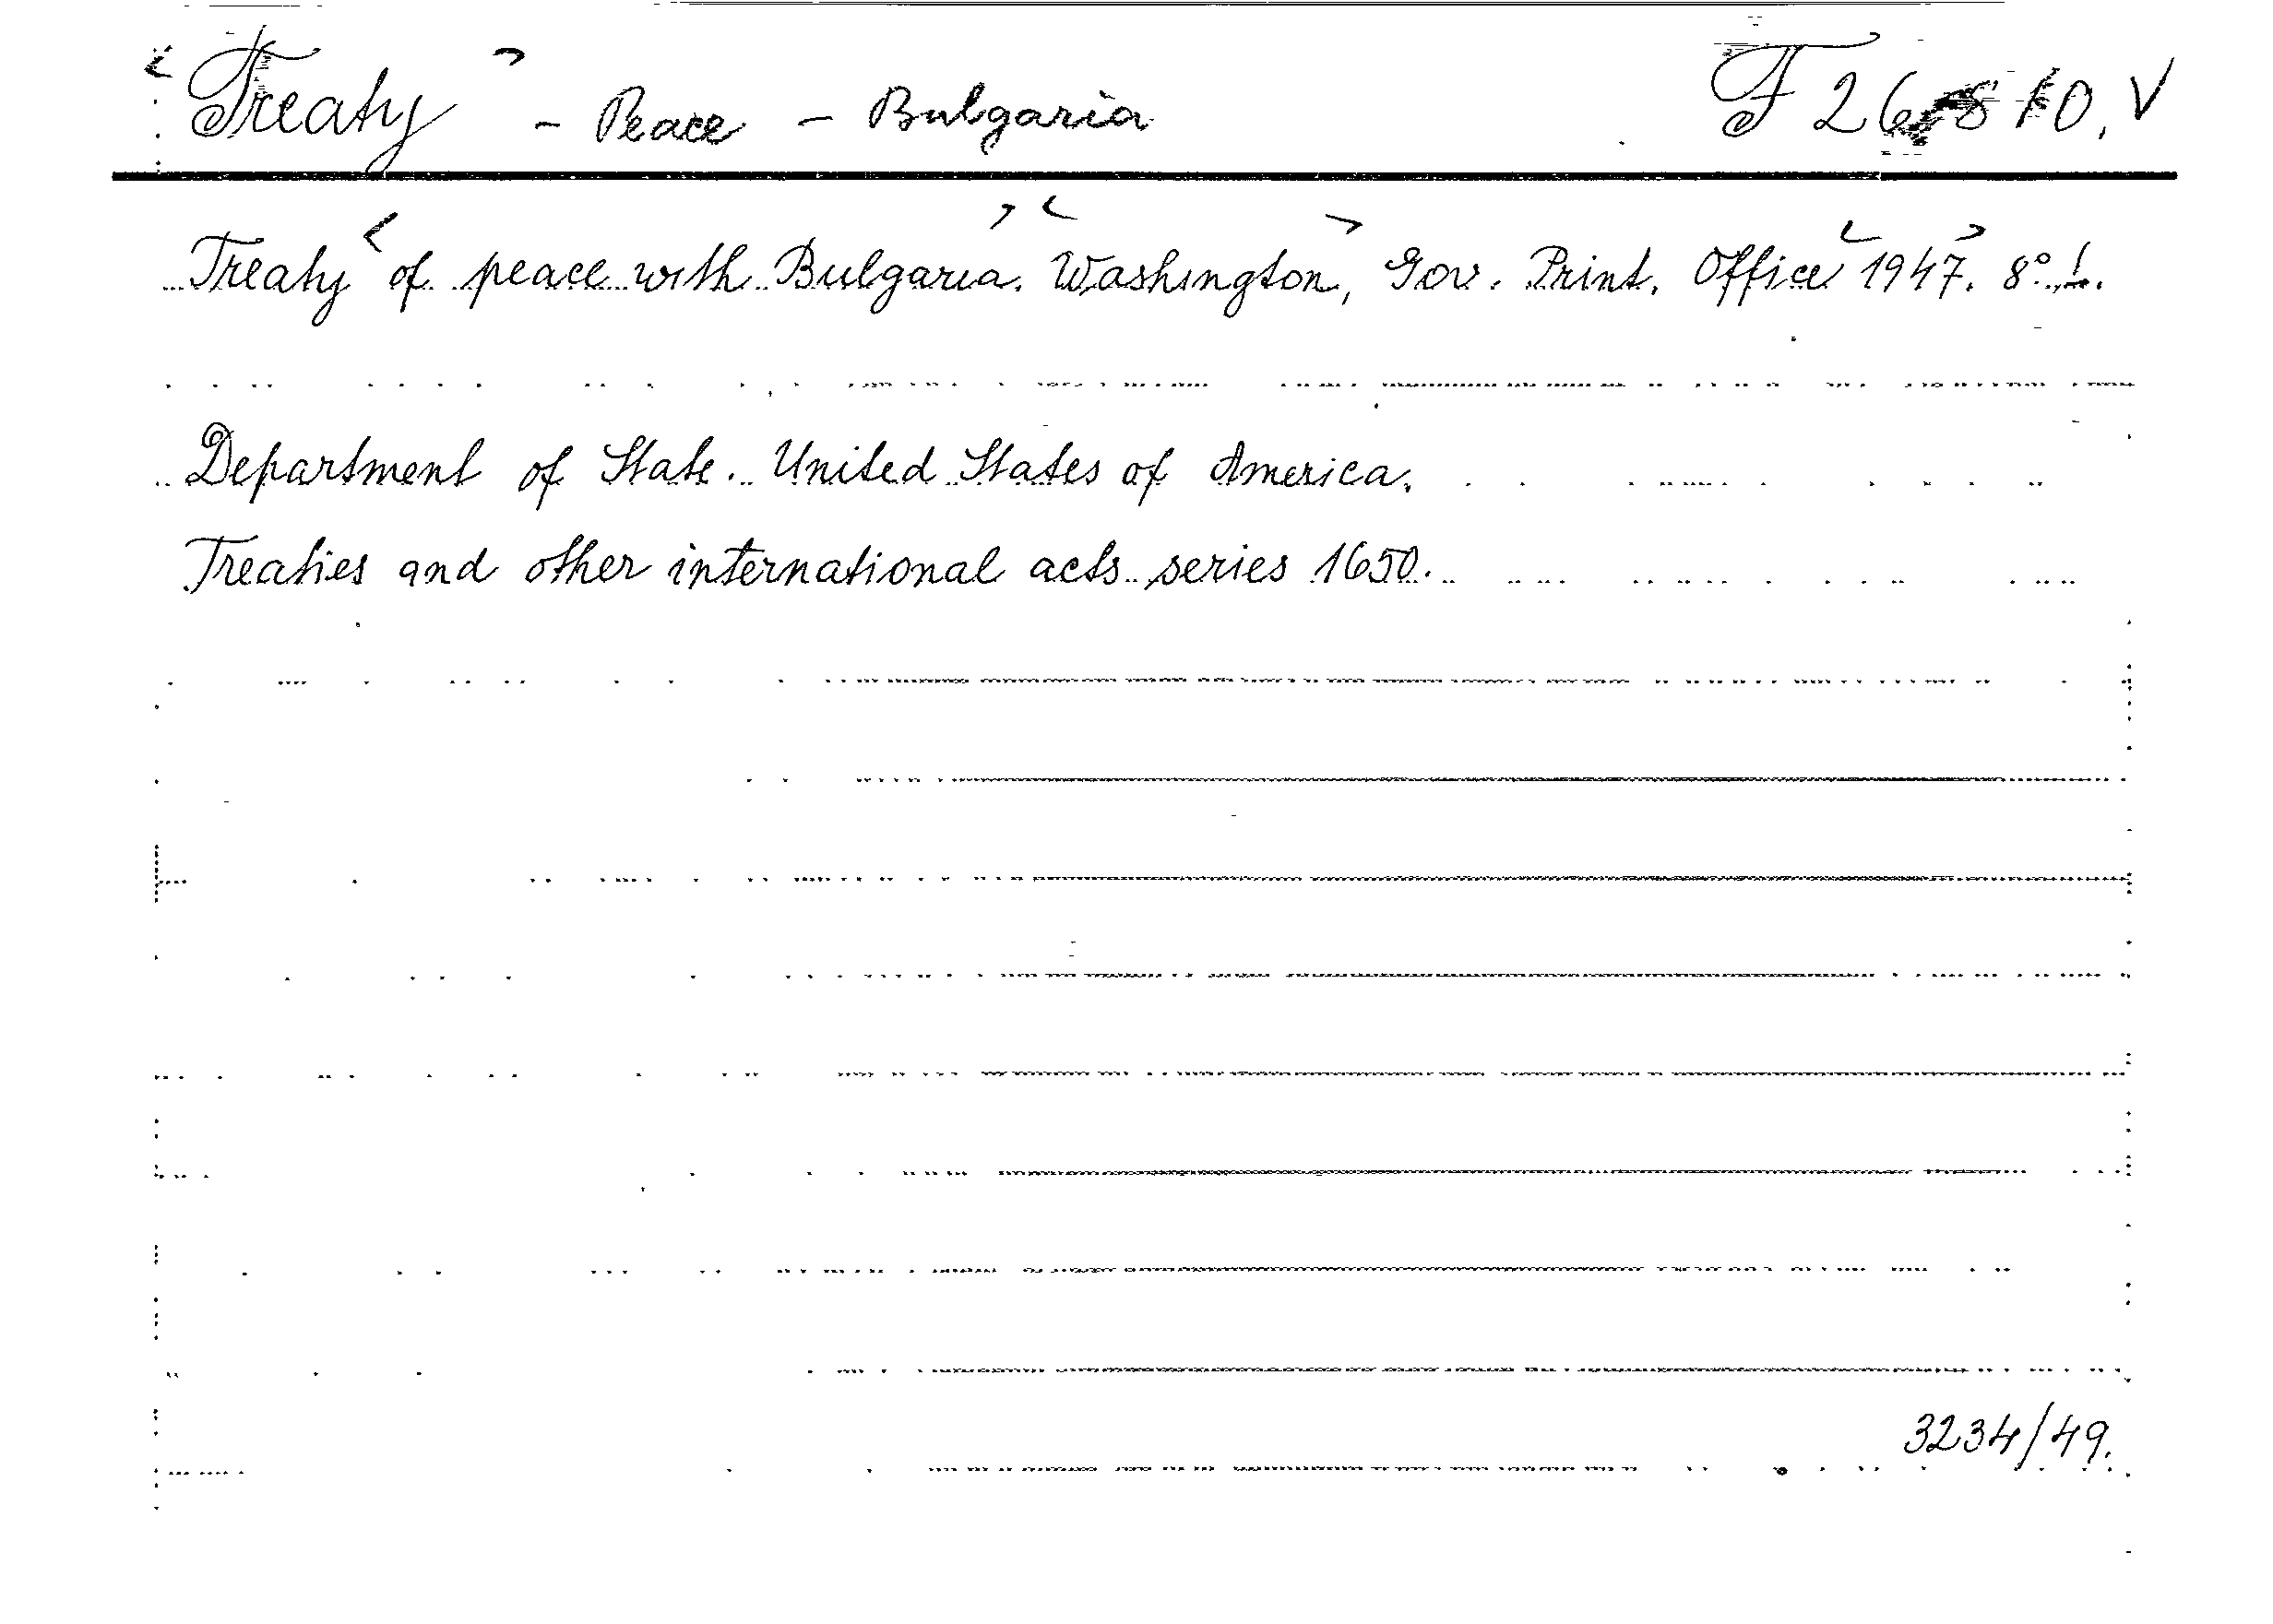 Treaty - Peace - Bulgaria F 26810. V
Treaty of peace with Bulgaria. Washington, Gov. Print. Office 1947. 8°.
Department of State. United States of America.
Treaties and other international acts series 1650.
3234/49.